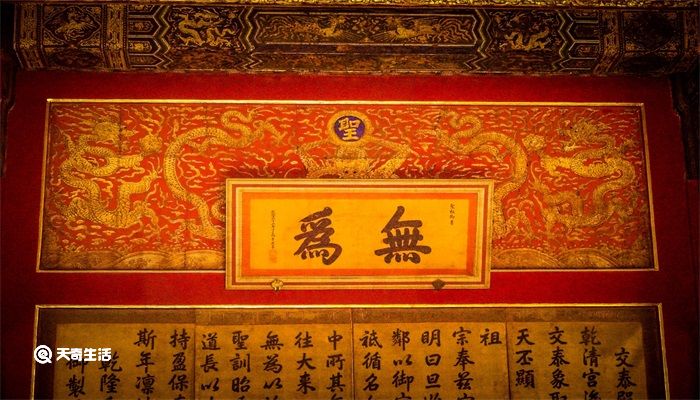 聖
無爲
交泰殿
乾清宮
交泰象取
天丕顯
祖
宗奉茲
明曰旦
鄰以御
祗循名
中所其
往大來
無為以
聖訓昭
道長以
持盈保
斯年凜
乾隆
御製
天奇生活